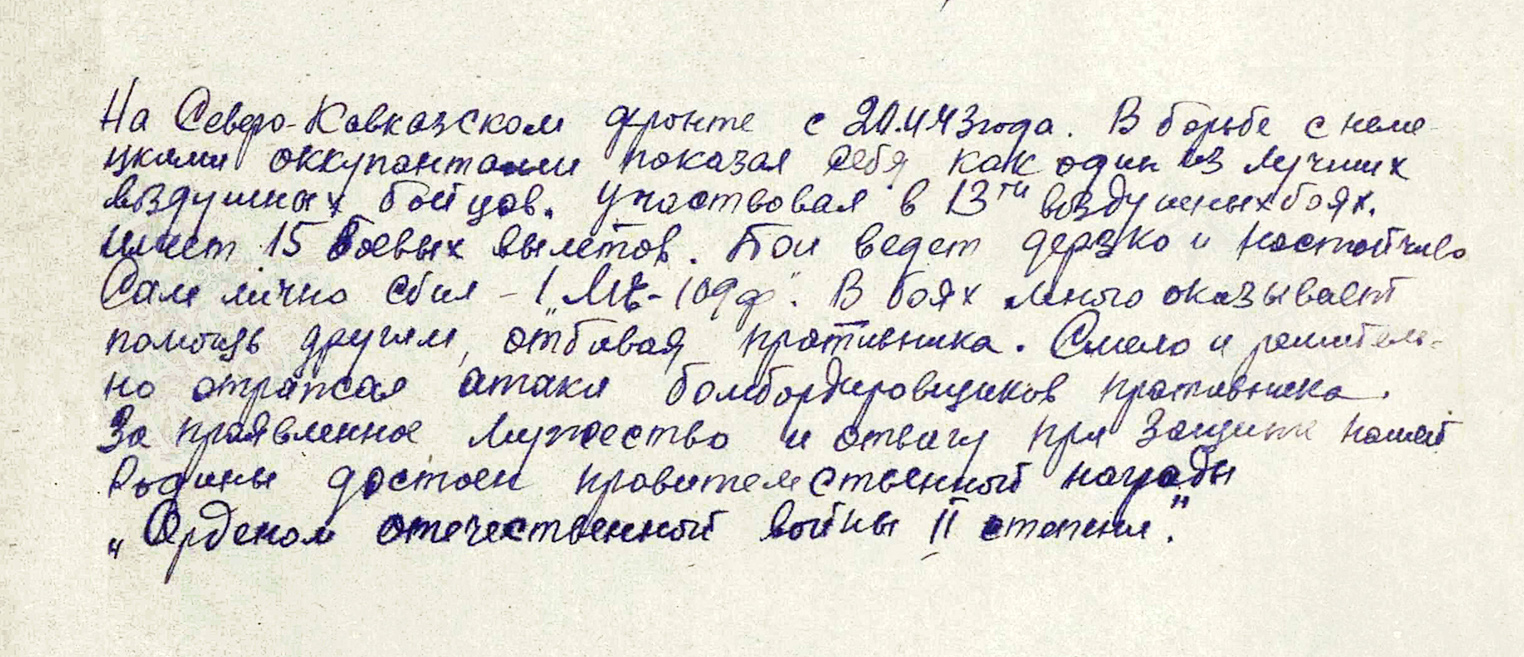 На Северо-Кавказском фронте с 20.4.43 года. В борьбе с неме-
цкими оккупантами показал себя как один из лучших
воздушных бойцов. Участвовал в 13ти воздушных боях.
имеет 15 боевых вылетов. Бои ведет дерзко и настойчиво
Сам лично сбил - 1 „Ме-109ф". В боях много оказывает
помощь другим, отбивая противника. Смело и решитель-
но отражал атаки бомбордировщиков противника.
За проявленное мужество и отвагу при защите нашей
Родины достоен правительственной награды
„Орденом отечественной войны II степени."